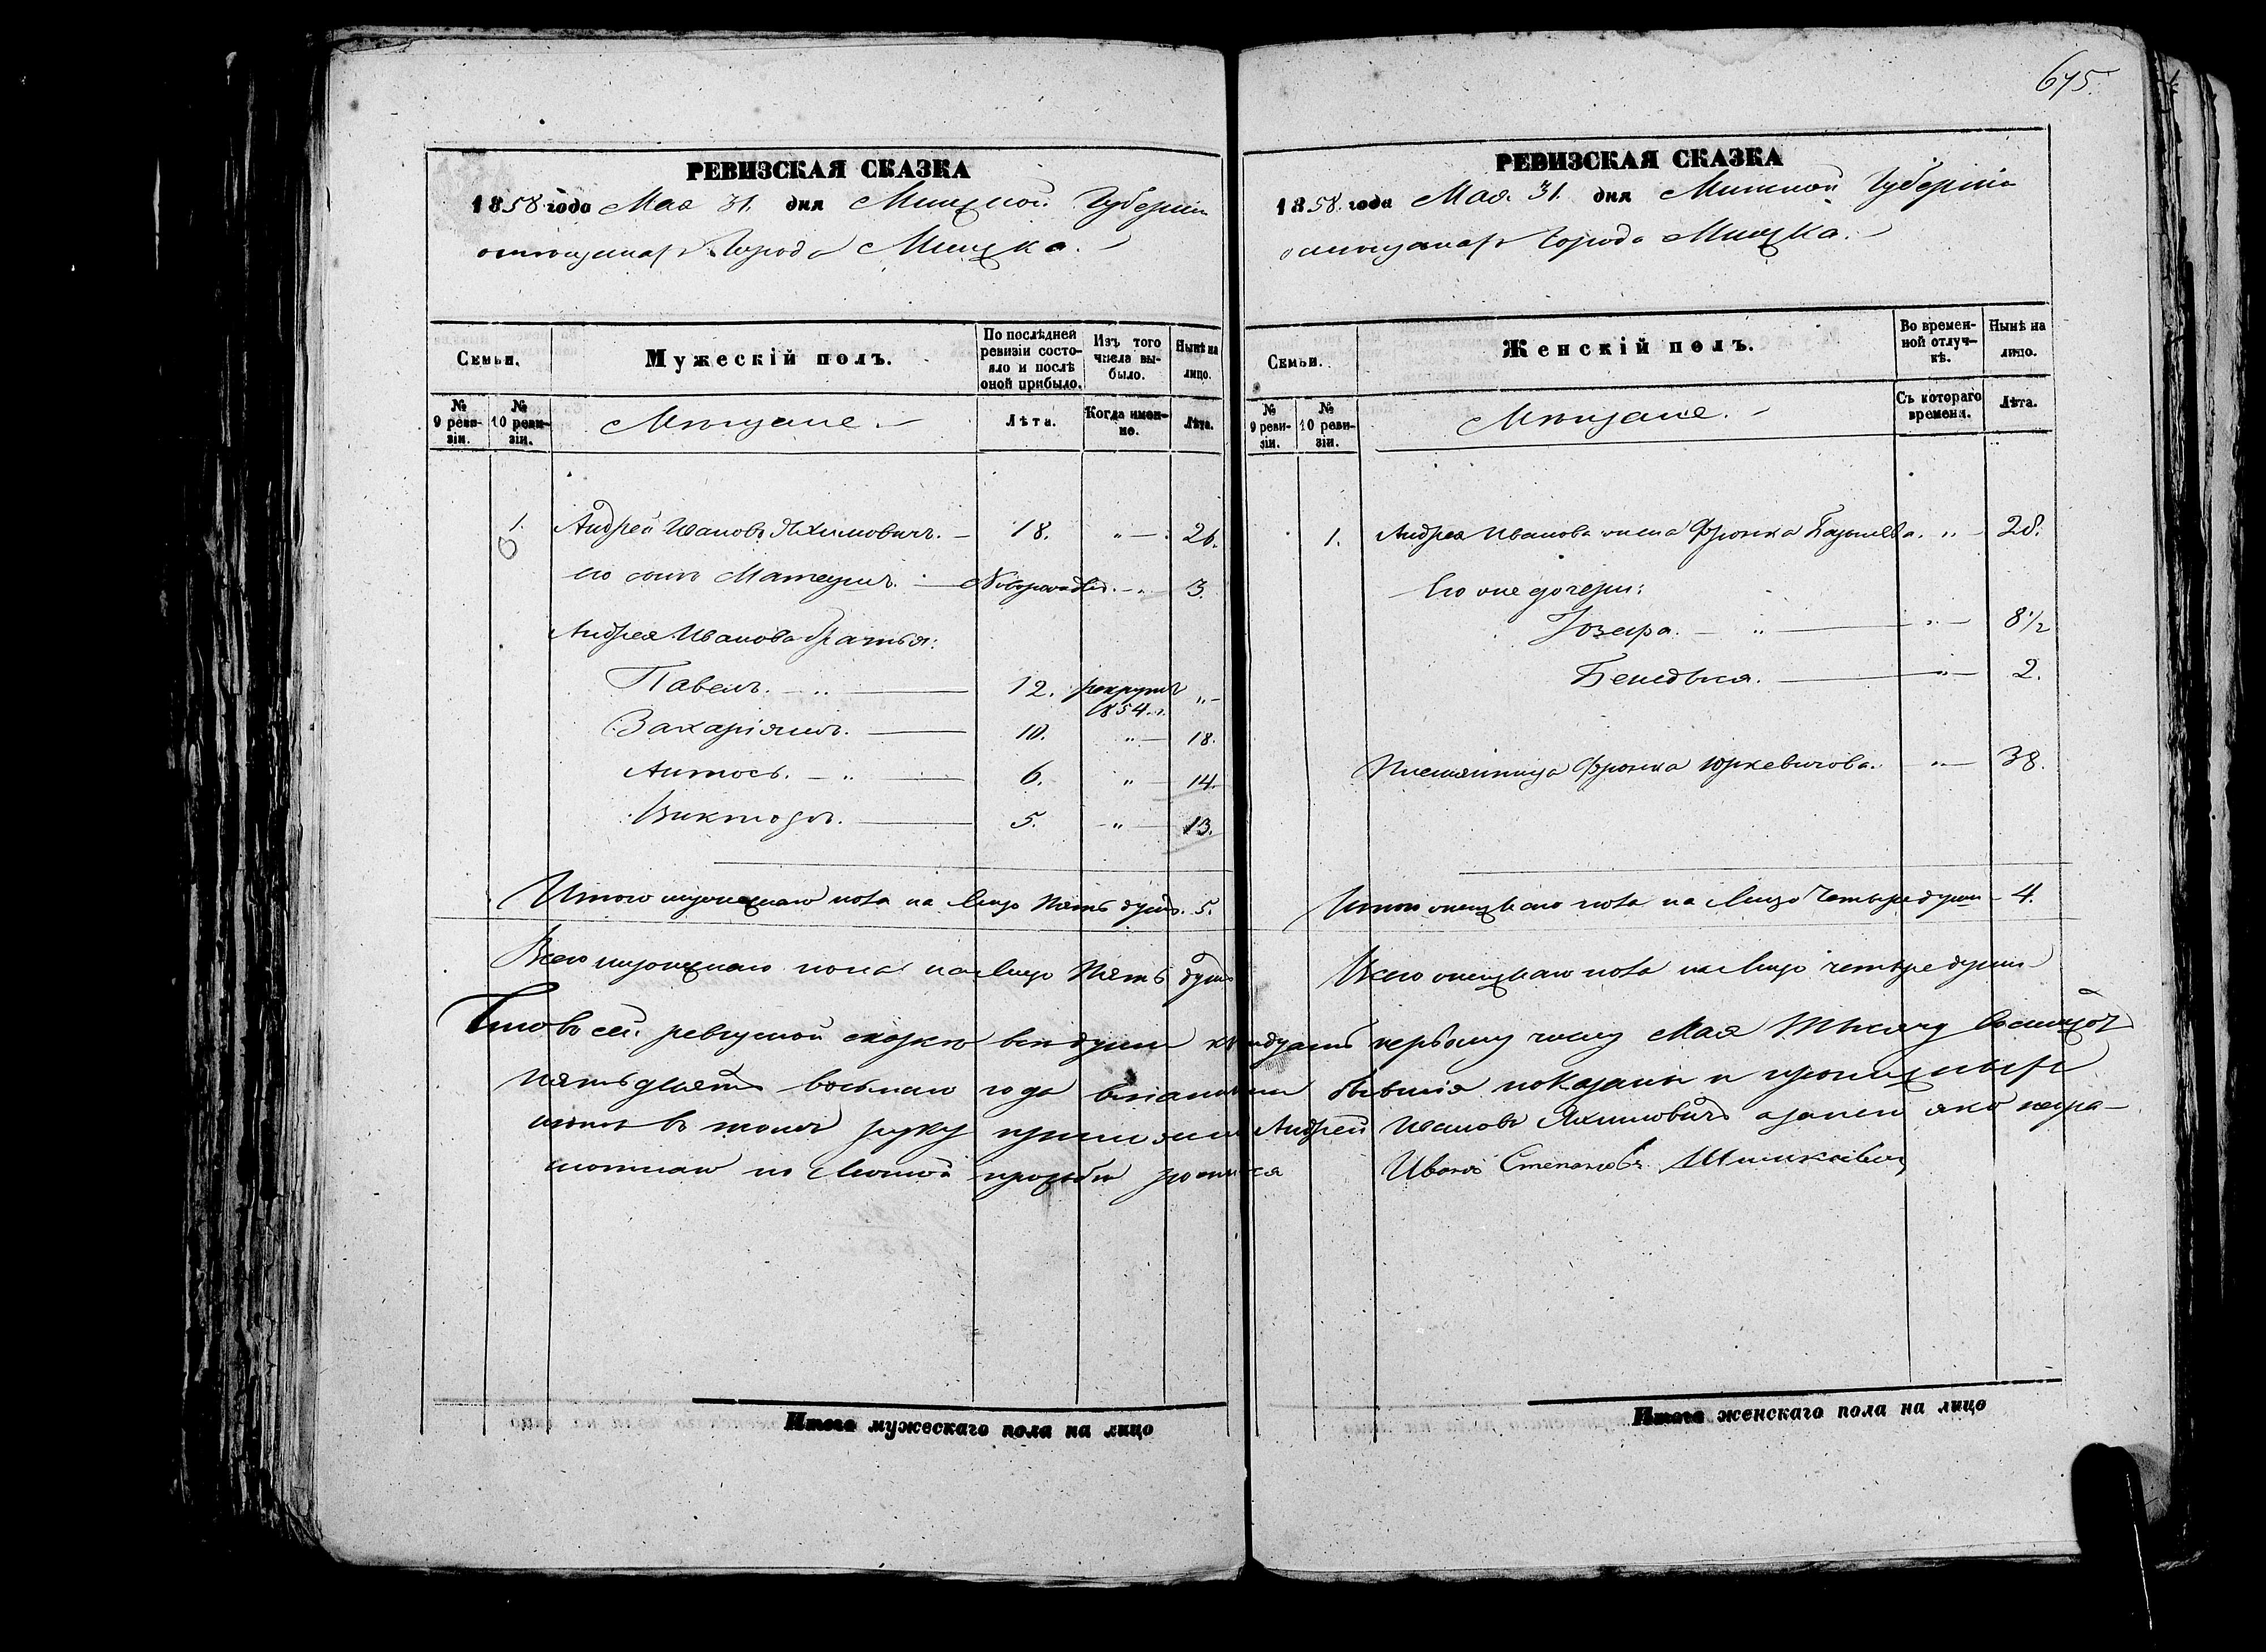 675.
РЕВИЗСКАЯ СКАЗКА
1858 года Мая 31. дня Минской Губернии
о мещанах Города Минска.
Семьи.
Мужескій полъ.
По послѣдней ревизіи состояло и послѣ оной прибыло.
Изъ того числа выбыло.
Нынѣ на лицо.
№ 9 ревизіи.
№ 10 ревизіи.
Мещане.
Лѣта.
Когда именно.
Лѣта.
1. Андрей Иванов Яхимовичъ. 18. „ 26.
его сынъ Матеушъ. Новорожден. „ 3.
Андрея Иванова братья:
Павелъ. 12. рекрутъ 1854 г. „
Захаріяшъ. 10. „ 18.
Антось. 6. „ 14.
Викторъ. 5. „ 13.
Итого мужескаго пола на лицо Пять душъ. 5.
Всего мужескаго пола на лицо Пять душъ
РЕВИЗСКАЯ СКАЗКА
1858 года Мая 31. дня Минской Губерніи
о мещанах Города Минска.
Семьи.
Женскій полъ.
Во временной отлучкѣ.
Нынѣ на лицо.
№ 9 ревизіи.
№ 10 ревизіи.
Мещане.
Съ котораго времени.
Лѣта.
1. Андрея Иванова жена Фронка „ 28.
Его же дочери:
Юзефа. „ 8 1/2
Бенедыся. „ 2.
Племянница Фронка Юркевичова. „ 38.
Итого женскаго пола на лицо Четыре души 4.
Всего женскаго пола на лицо четыре души
Что в сей ревизской сказке все души к двадцать первому числу Мая Тысячу восемсот
пятьдесят восьмаго года в бывшія показаны и прописных
нет в томъ руку Андрей Иванов Яхимовичъ а за него яко негра-
мотнаго по личной прозьбы росписался Иван Степанов
Итого мужескаго пола на лицо
Итого женскаго пола на лицо